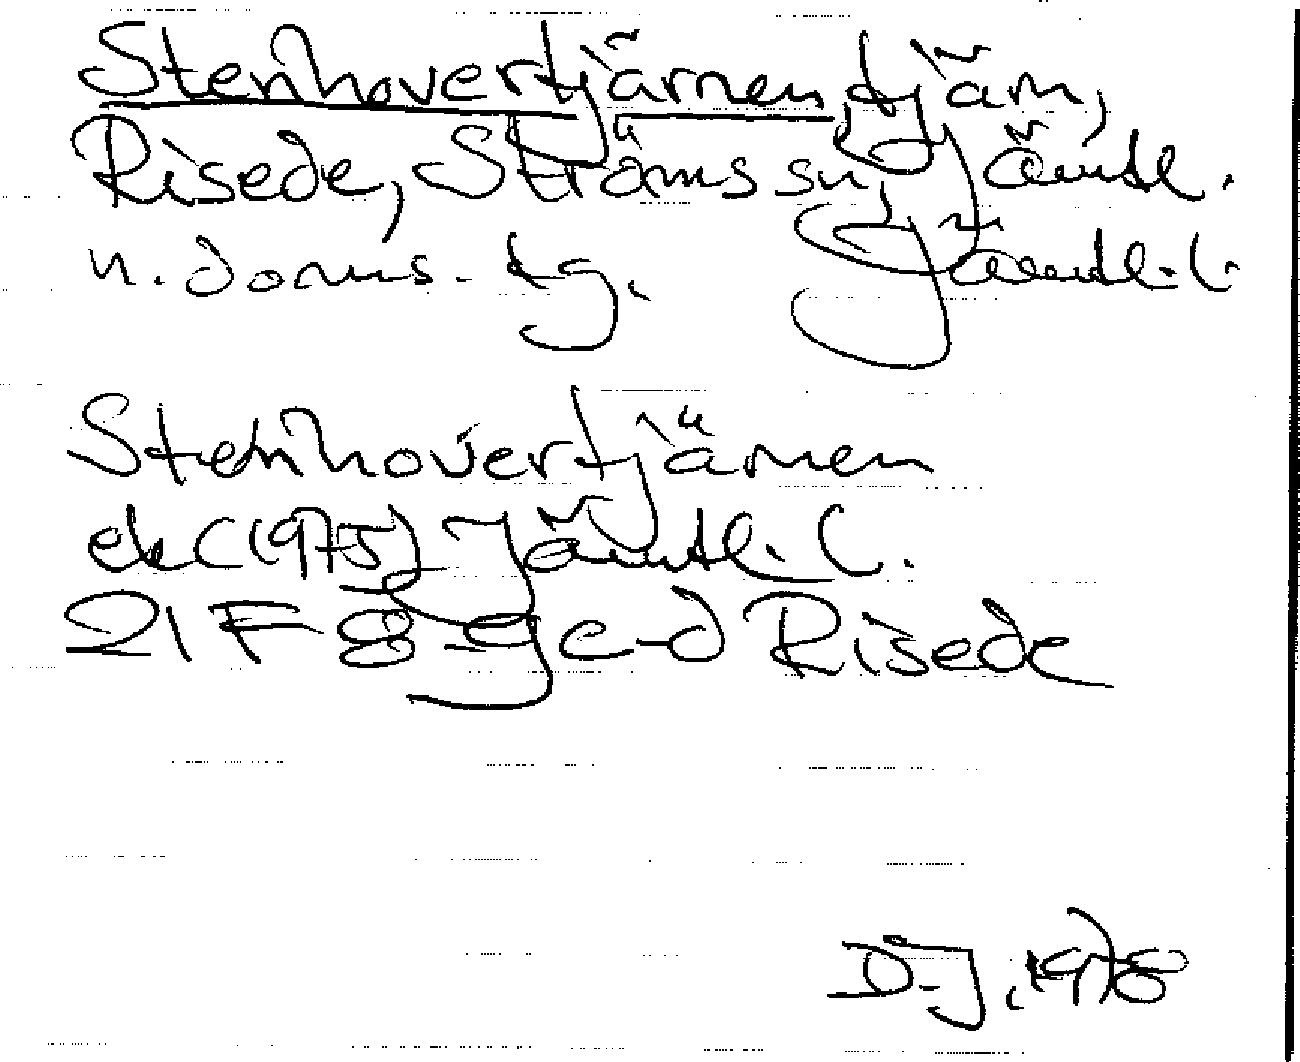 Stenhovertjärnen, tjärn,
Risede, Ströms sn, Jämtl.
n. doms. tg. Jämtl. l.
Stenhovertjärnen
ek (1975) Jämtl. l.
21 F 8-9 c-d Risede
D-J. 1978